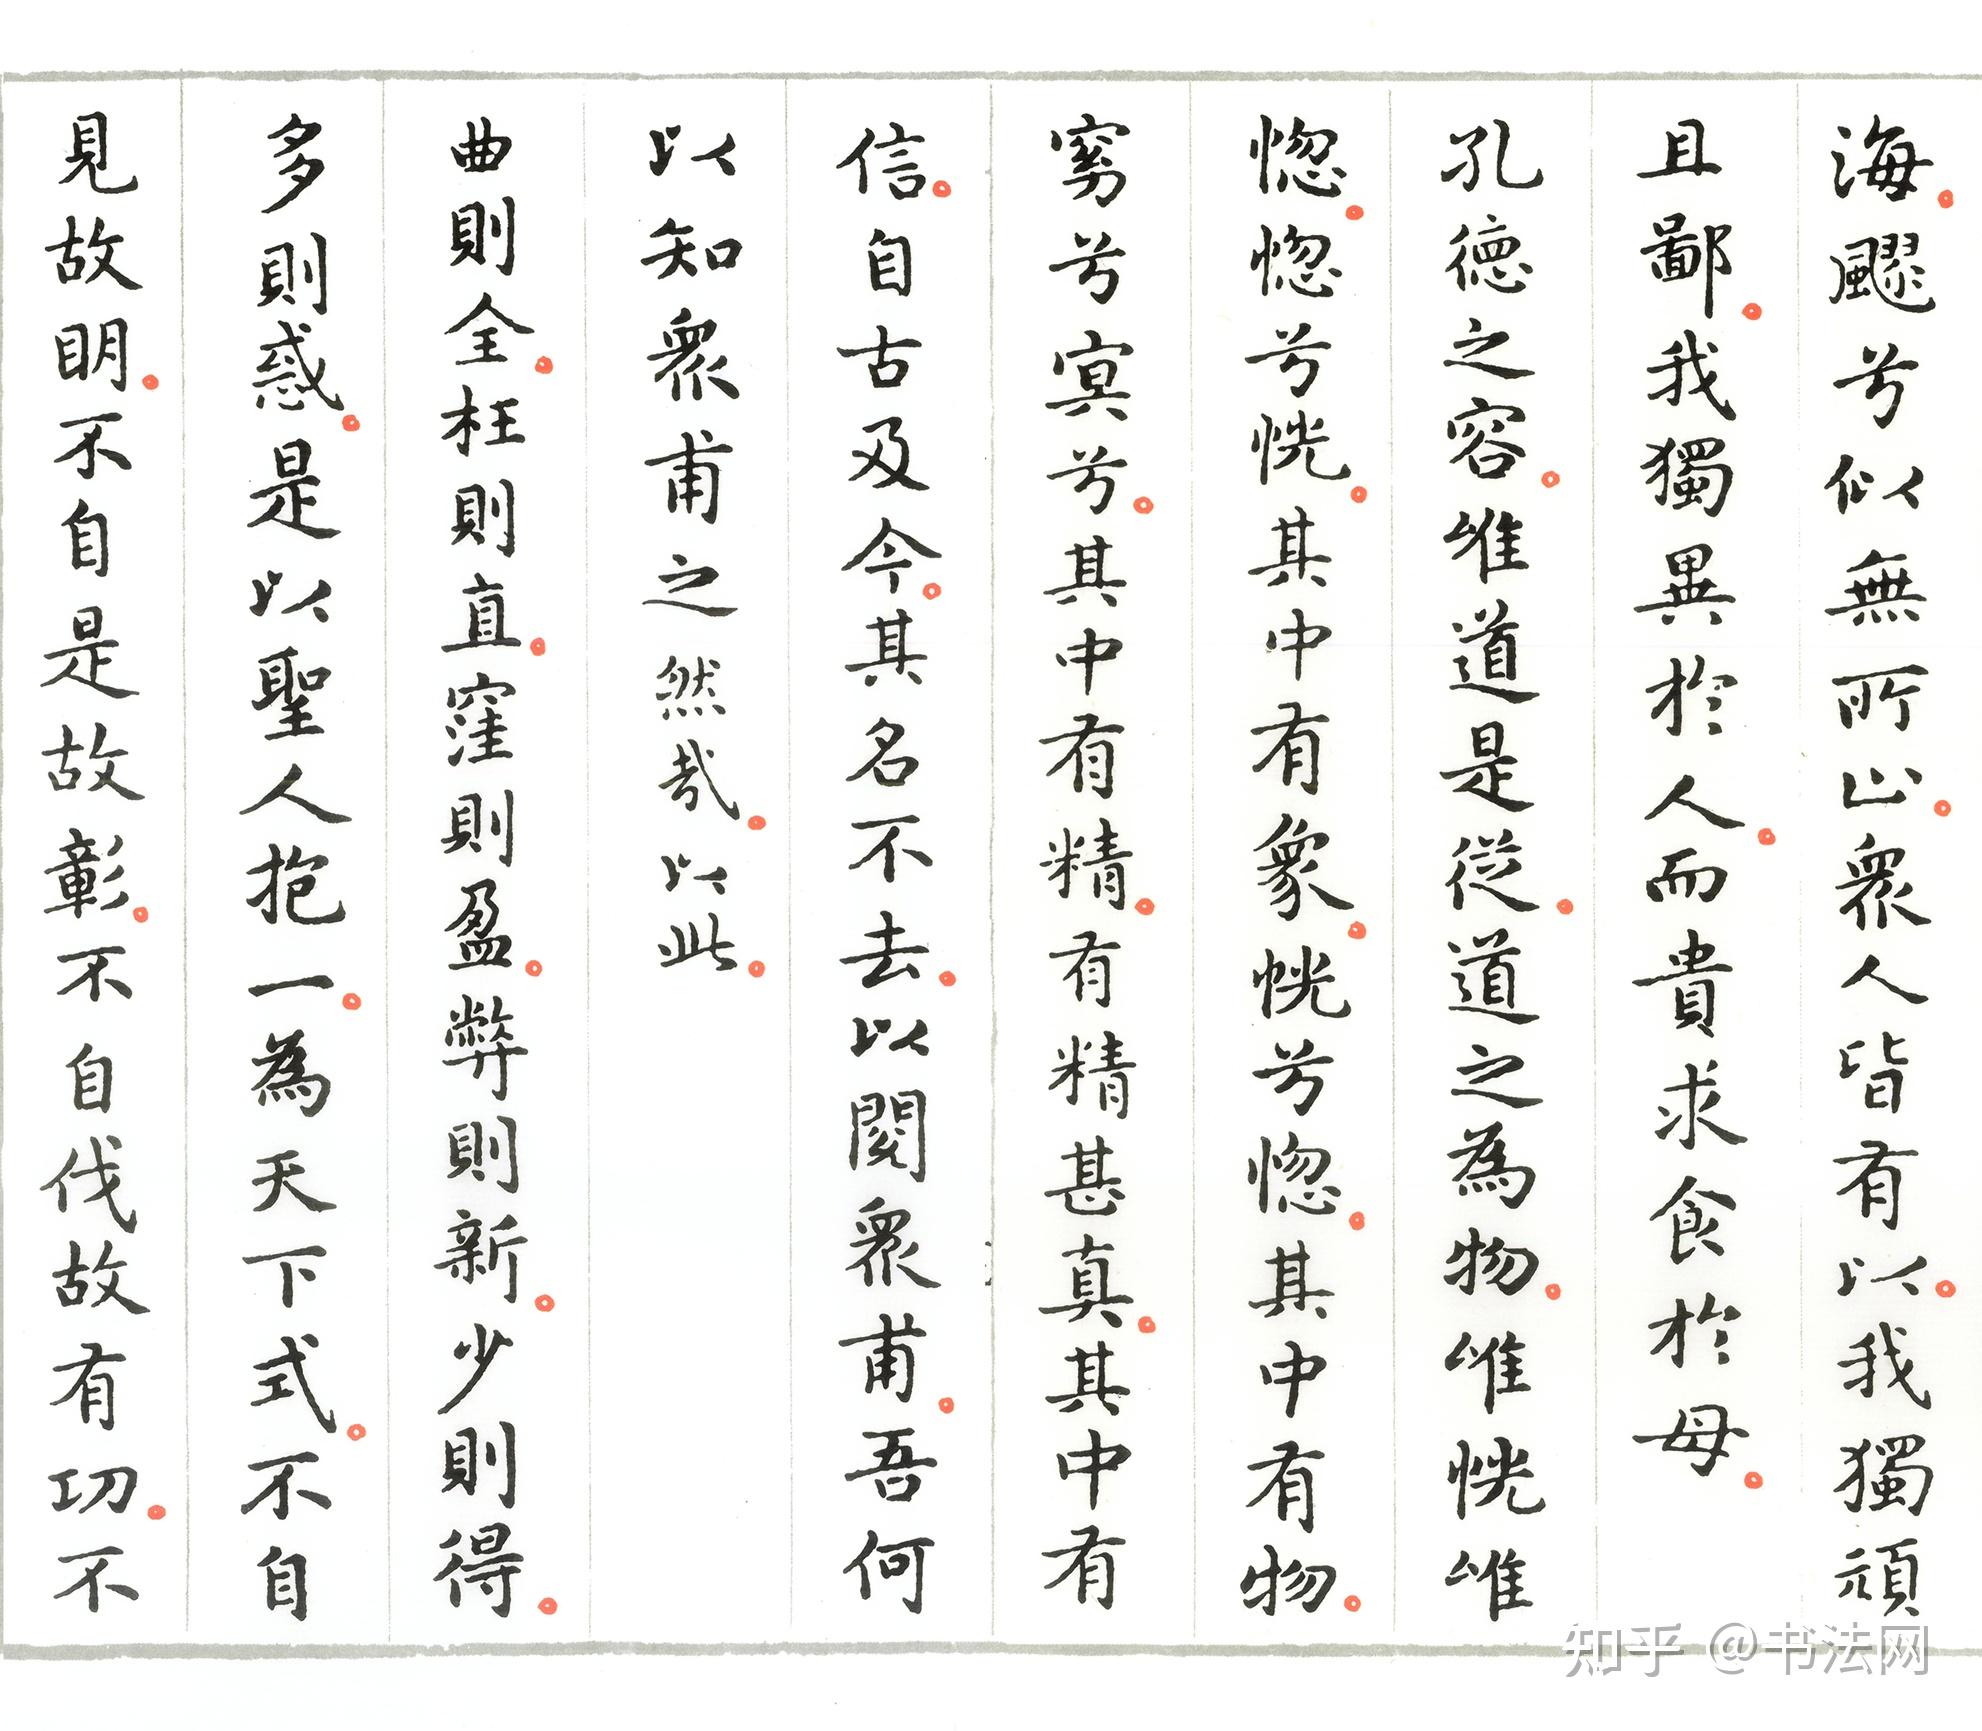 海。飂兮似無所止。衆人皆有以。我獨頑
且鄙。我獨異於人。而貴求食於母。
孔德之容。唯道是從。道之為物。唯恍唯
惚。惚兮恍。其中有象。恍兮惚。其中有物。
窈兮冥兮。其中有精。有精甚真。其中有
信。自古及今。其名不去。以閱衆甫。吾何
以知衆甫之然哉。以此。
曲則全。枉則直。窪則盈。弊則新。少則得。
多則惑。是以聖人抱一。為天下式。不自
見故明。不自是故彰。不自伐故有功。不
知乎 @书法网